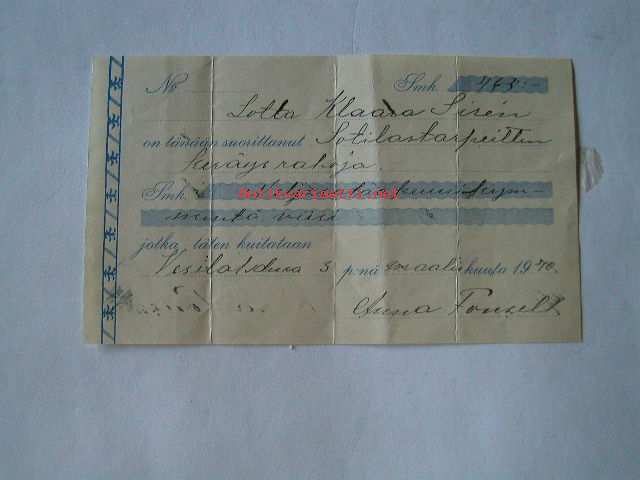 No Smk. 465:-
Lotta Klaara Sirén
on tänään suorittanut Sotilastarpeitten
keräys rahoja.
Smk.
mentä viisi
jotka täten kuitataan
Vesilahdessa 3 p:nä maaliskuuta 1940.
Anna Fonsell